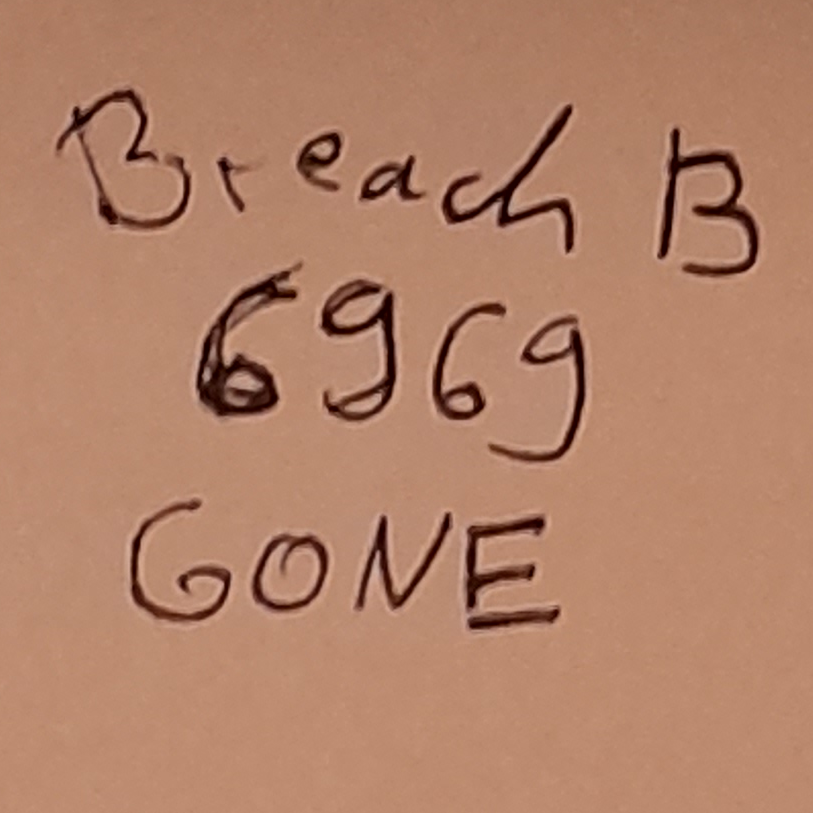 Breach B
6969
GONE